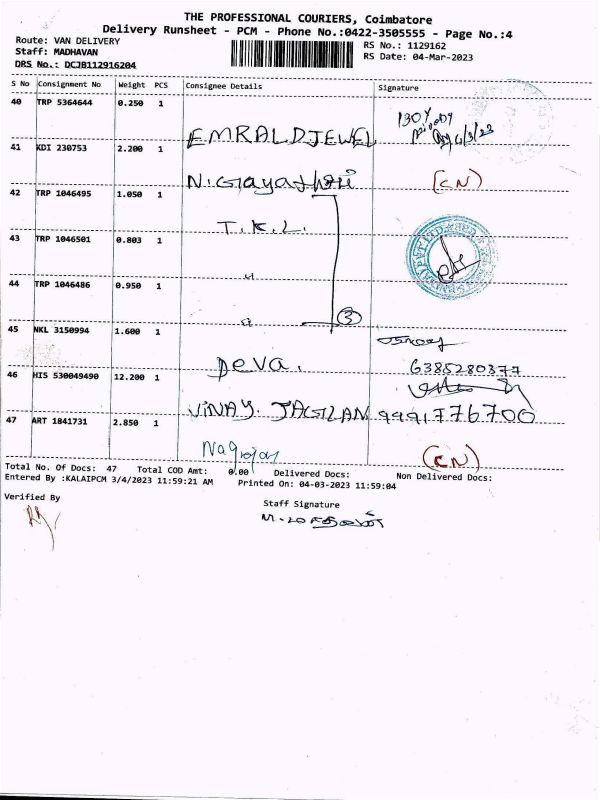 THE PROFESSIONAL COURIERS, Coimbatore
Delivery Runsheet - PCM - Phone No.:0422-3505555 - Page No.:4
Route: VAN DELIVERY
RS No.: 1129162
Staff: MADHAVAN
RS Date: 04-Mar-2023
DRS No.: DCJB112916204
S No Consignment No Weight PCS Consignee Details Signature
40 TRP 5364644 0.250 1
EMRALD JEWEL
41 KDI 230753 2.200 1
N. Gayathri (CN)
42 TRP 1046495 1.050 1
T.K.L.
43 TRP 1046501 0.803 1
"
44 TRP 1046486 0.950 1
" 3
45 NKL 3150994 1.600 1
Deva. 6385280377
46 HIS 530049490 12.200 1
VINAY. JAGILAN 9991776700
47 ART 1841731 2.850 1
Nagraj (CN)
Total No. Of Docs: 47 Total COD Amt: 0.00 Delivered Docs: Non Delivered Docs:
Entered By :KALAIPCM 3/4/2023 11:59:21 AM Printed On: 04-03-2023 11:59:04
Verified By
Staff Signature